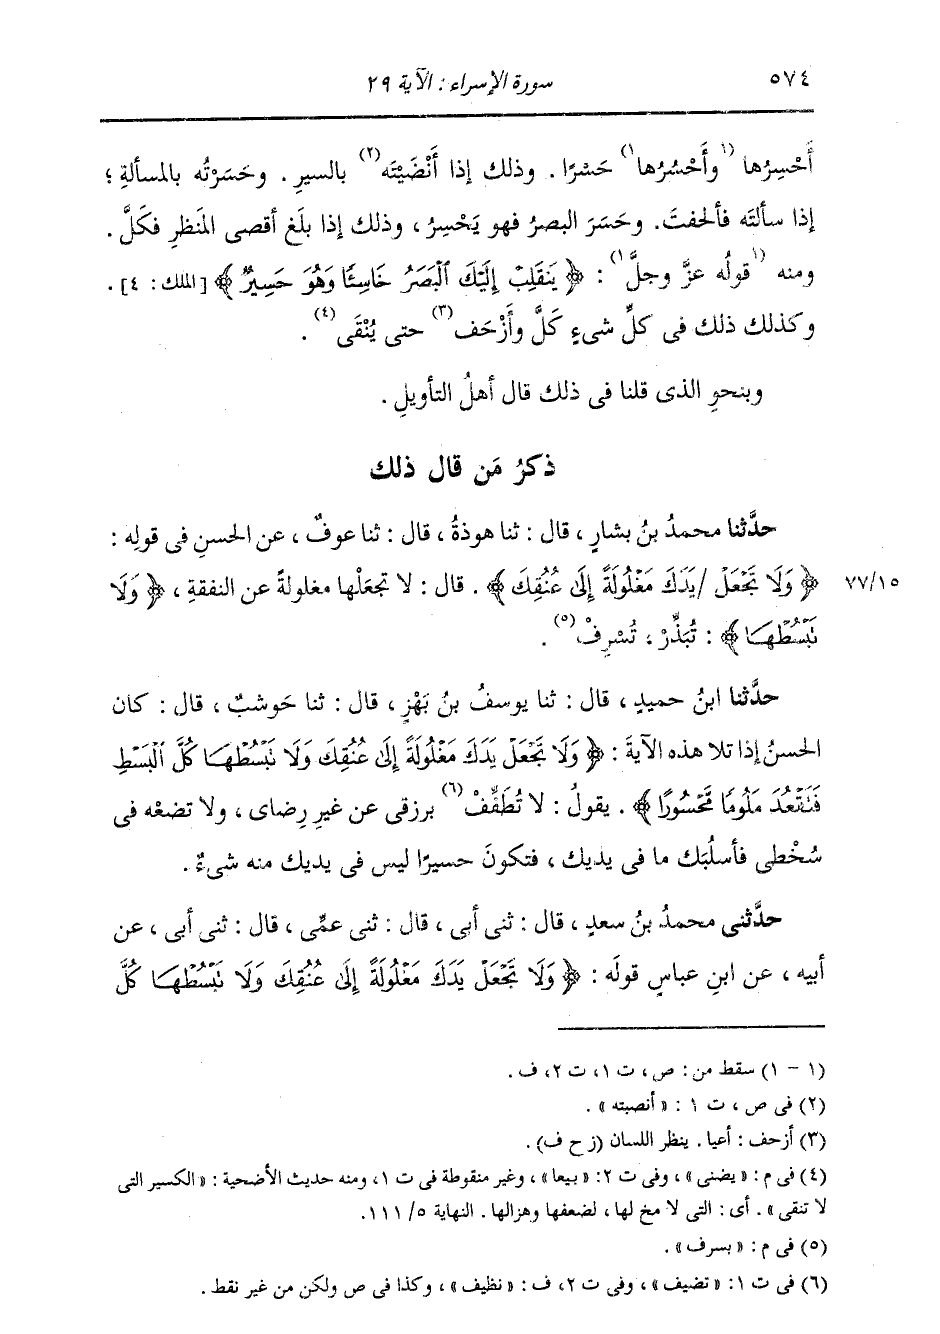 ٥٧٤
سورة الإسراء : الآية ٢٩
أَحْسِرُها (١وأَحْسُرُها١) حَسْرًا . وذلك إذا أَنْضَيْتَه(٢) بالسيرِ . وحَسَرْتُه بالمسألةِ ؛
إذا سألتَه فألحفتَ. وحَسَرَ البصرُ فهو يَحْسِرُ ، وذلك إذا بلَغ أقصى المَنظرِ فكَلَّ .
ومنه (١قولُه عزَّ وجلَّ١) : ﴿ يَنقَلِبْ إِلَيْكَ ٱلْبَصَرُ خَاسِئًا وَهُوَ حَسِيرٌ ﴾ [الملك : ٤] .
وكذلك ذلك فى كلِّ شىءٍ كَلَّ وأَزْحَف(٣) حتى يُنْقَى(٤) .
وبنحوِ الذى قلنا فى ذلك قال أهلُ التأويلِ .
ذكرُ مَن قال ذلك
حدَّثنا محمدُ بنُ بشارٍ ، قال : ثنا هوذةُ ، قال : ثنا عوفٌ ، عن الحسنِ فى قولِه :
﴿ وَلَا تَجْعَلْ /يَدَكَ مَغْلُولَةً إِلَىٰ عُنُقِكَ ﴾ . قال : لا تجعَلْها مغلولةً عن النفقةِ ، ﴿ وَلَا
٧٧/١٥
تَبْسُطْهَا ﴾ : تُبَذِّرْ ، تُسْرِفْ(٥) .
حدَّثنا ابنُ حميدٍ ، قال : ثنا يوسفُ بنُ بَهْزٍ ، قال : ثنا حَوشبٌ ، قال : كان
الحسنُ إذا تلا هذه الآيةَ : ﴿ وَلَا تَجْعَلْ يَدَكَ مَغْلُولَةً إِلَىٰ عُنُقِكَ وَلَا تَبْسُطْهَا كُلَّ ٱلْبَسْطِ
فَتَقْعُدَ مَلُومًا مَّحْسُورًا ﴾ . يقولُ : لا تُطَفِّفْ(٦) برزقى عن غيرِ رِضاى ، ولا تضعْه فى
سُخْطى فأسلُبَك ما فى يديك ، فتكونَ حسيرًا ليس فى يديك منه شىءٌ .
حدَّثنى محمدُ بنُ سعدٍ ، قال : ثنى أبى ، قال : ثنى عمِّى ، قال : ثنى أبى ، عن
أبيه ، عن ابنِ عباسٍ قولَه : ﴿ وَلَا تَجْعَلْ يَدَكَ مَغْلُولَةً إِلَىٰ عُنُقِكَ وَلَا تَبْسُطْهَا كُلَّ
(١ - ١) سقط من : ص ، ت ١، ت ٢، ف .
(٢) فى ص ، ت ١ : « أنصبته » .
(٣) أزحف : أعيا . ينظر اللسان (ز ح ف) .
(٤) فى م : « يضنى » ، وفى ت ٢: « بيعا » ، وغير منقوطة فى ت ١، ومنه حديث الأضحية : « الكسير التى
لا تنقى » . أى : التى لا مخ لها ، لضعفها وهزالها . النهاية ٥/ ١١١.
(٥) فى م : « بسرف » .
(٦) فى ت ١: « تضيف » ، وفى ت ٢، ف : « نظيف » ، وكذا فى ص ولكن من غير نقط .